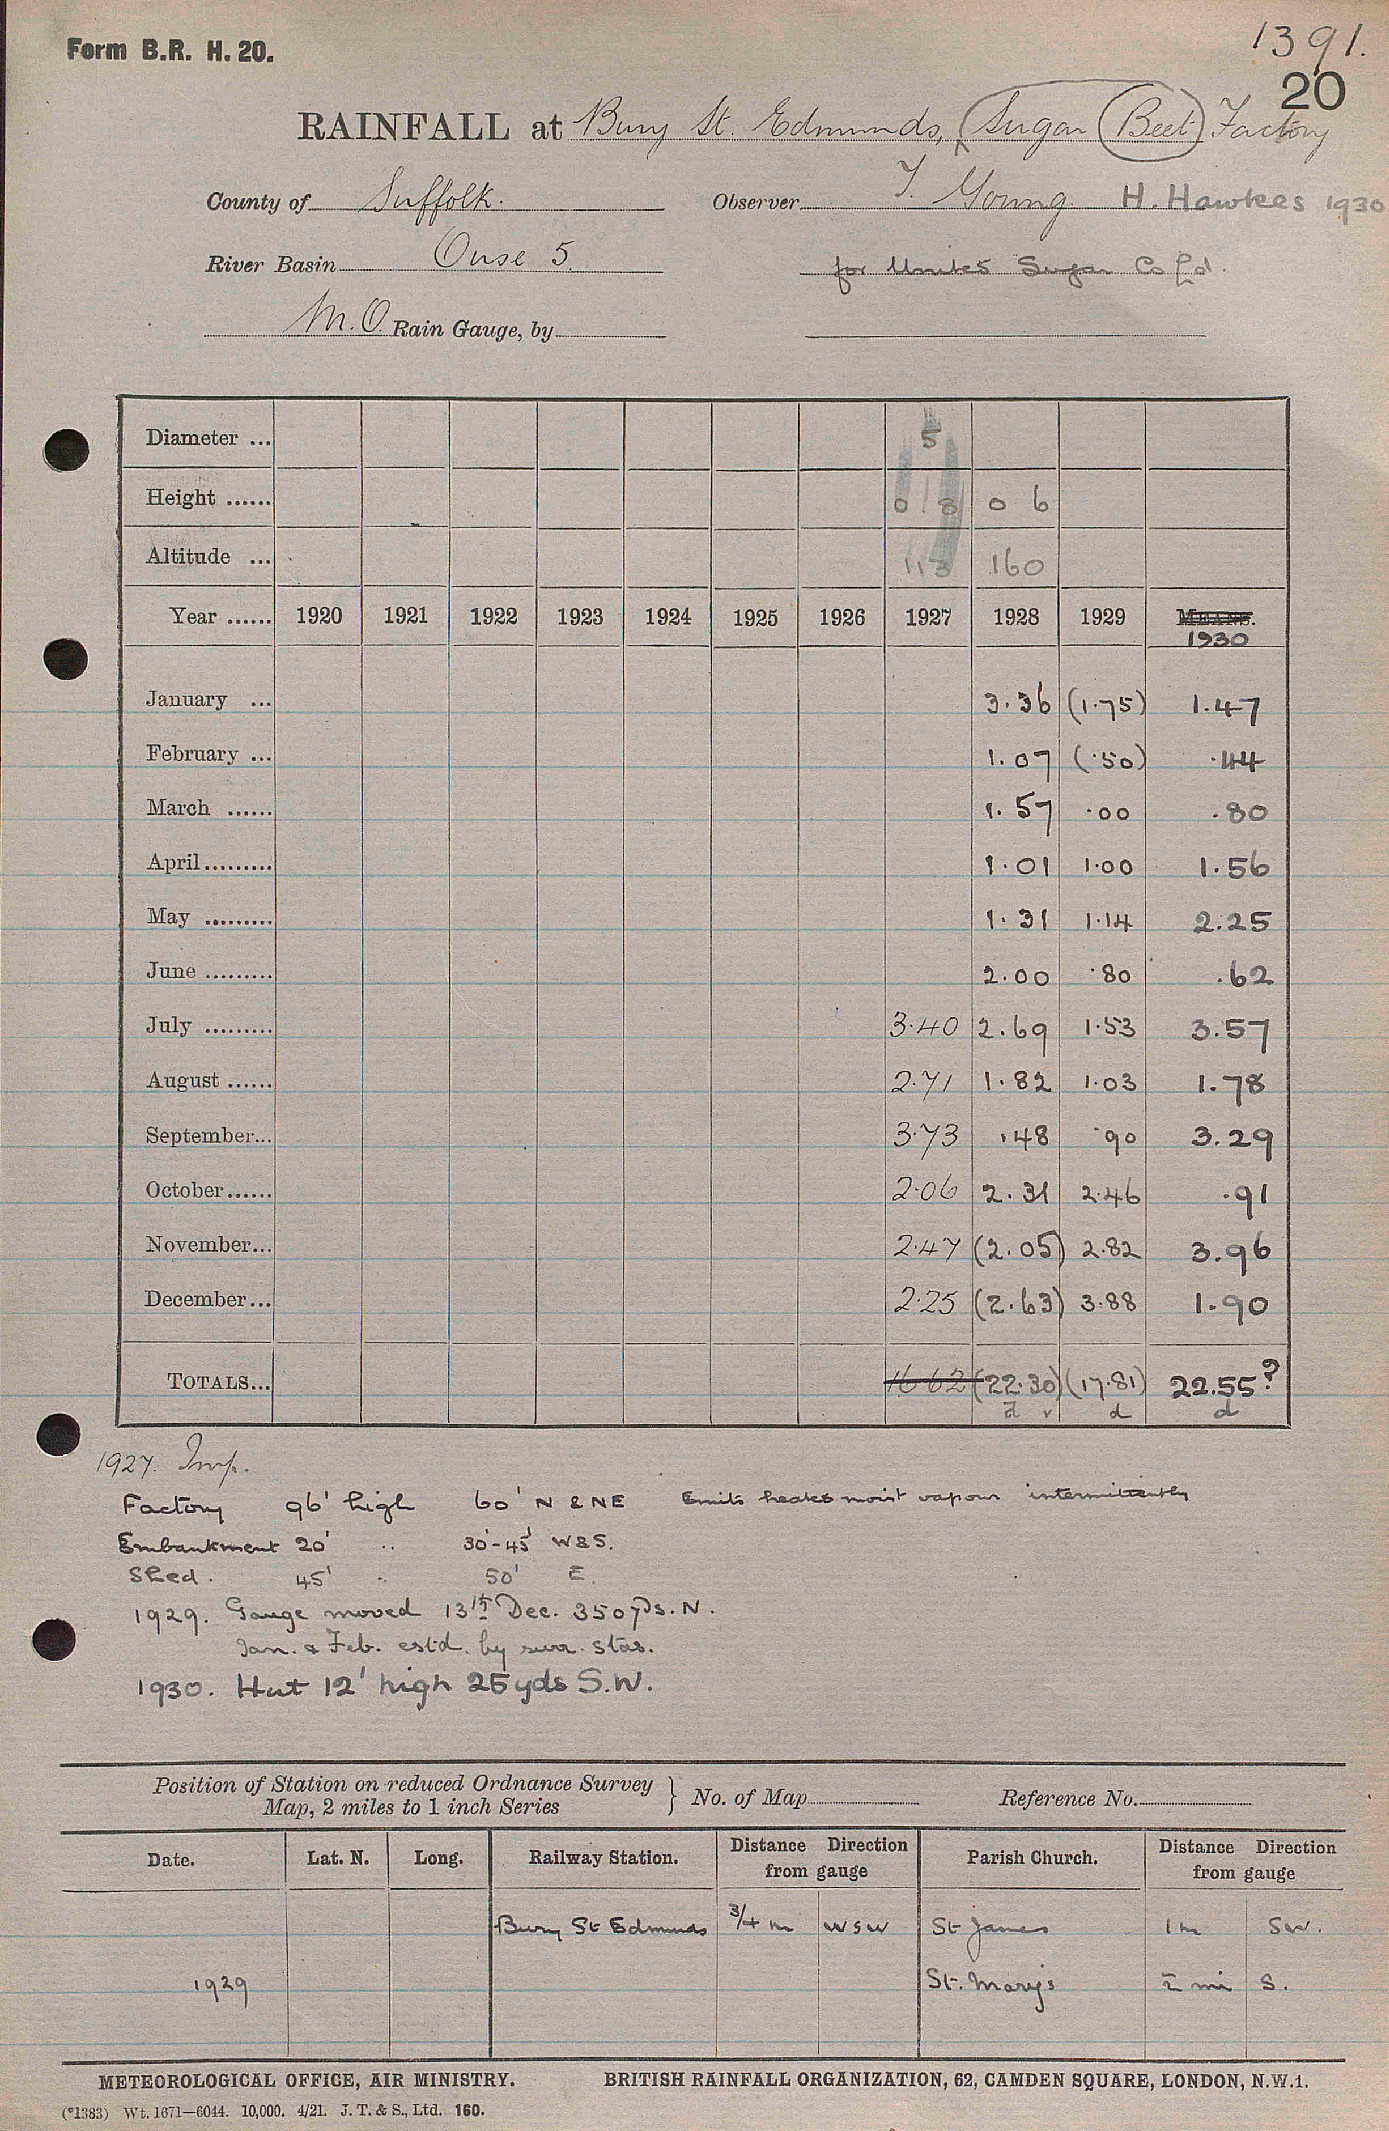 Form B.R. H. 20.
1391.
20
RAINFALL at Bury St. Edmunds, (Sugar (Beet) Factory
County of Suffolk. Observer T. Young. H. Hawkes 1930
River Basin Ouse 5. for United Sugar Co Ld.
M.O. Rain Gauge, by
Diameter ... 5
Height ...... 0 8 0 6
Altitude ... 113 160
Year ...... 1920 1921 1922 1923 1924 1925 1926 1927 1928 1929 MEANS.
1930
January ... 3.36 (1.75) 1.47
February ... 1.07 (.50) .44
March ...... 1.57 .00 .80
April ......... 1.01 1.00 1.56
May ......... 1.31 1.14 2.25
June ......... 2.00 .80 .62
July ......... 3.40 2.69 1.53 3.57
August ...... 2.71 1.82 1.03 1.78
September... 3.73 .48 .90 3.29
October...... 2.06 2.31 2.46 .91
November... 2.47 (2.05) 2.82 3.96
December... 2.25 (2.63) 3.88 1.90
TOTALS... 16.62 (22.30) (17.81) 22.55?
d v d d
1927. Imp.
Factory 96' high 60' N & NE Emits heated moist vapour intermittently
Embankment 20' .. 30'-45' W & S.
Shed. 45' .. 50' E.
1929. Gauge moved 13th Dec. 350 yds. N.
Jan. & Feb. estd. by surr. stas.
1930. Hut 12' high 25 yds S.W.
Position of Station on reduced Ordnance Survey
Map, 2 miles to 1 inch Series } No. of Map Reference No.
Date. Lat. N. Long. Railway Station. Distance Direction from gauge Parish Church. Distance Direction from gauge
Bury St Edmunds 3/4 m WSW St James 1 m SW.
1929 St. Mary's mi S.
METEOROLOGICAL OFFICE, AIR MINISTRY. BRITISH RAINFALL ORGANIZATION, 62, CAMDEN SQUARE, LONDON, N.W.1.
(*1383) Wt. 1671—6044. 10,000. 4/21. J. T. & S., Ltd. 160.